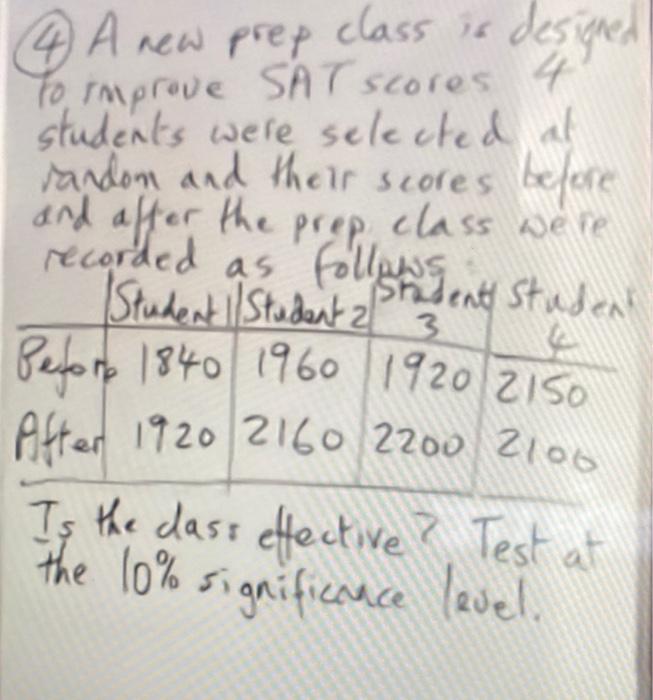 ④ A new prep class is designed
to improve SAT scores 4
students were selected at
random and their scores before
and after the prep class were
recorded as follows:
Student 1 Student 2 Student 3 Student 4
Before 1840 1960 1920 2150
After 1920 2160 2200 2100
Is the class effective? Test at
the 10% significance level.